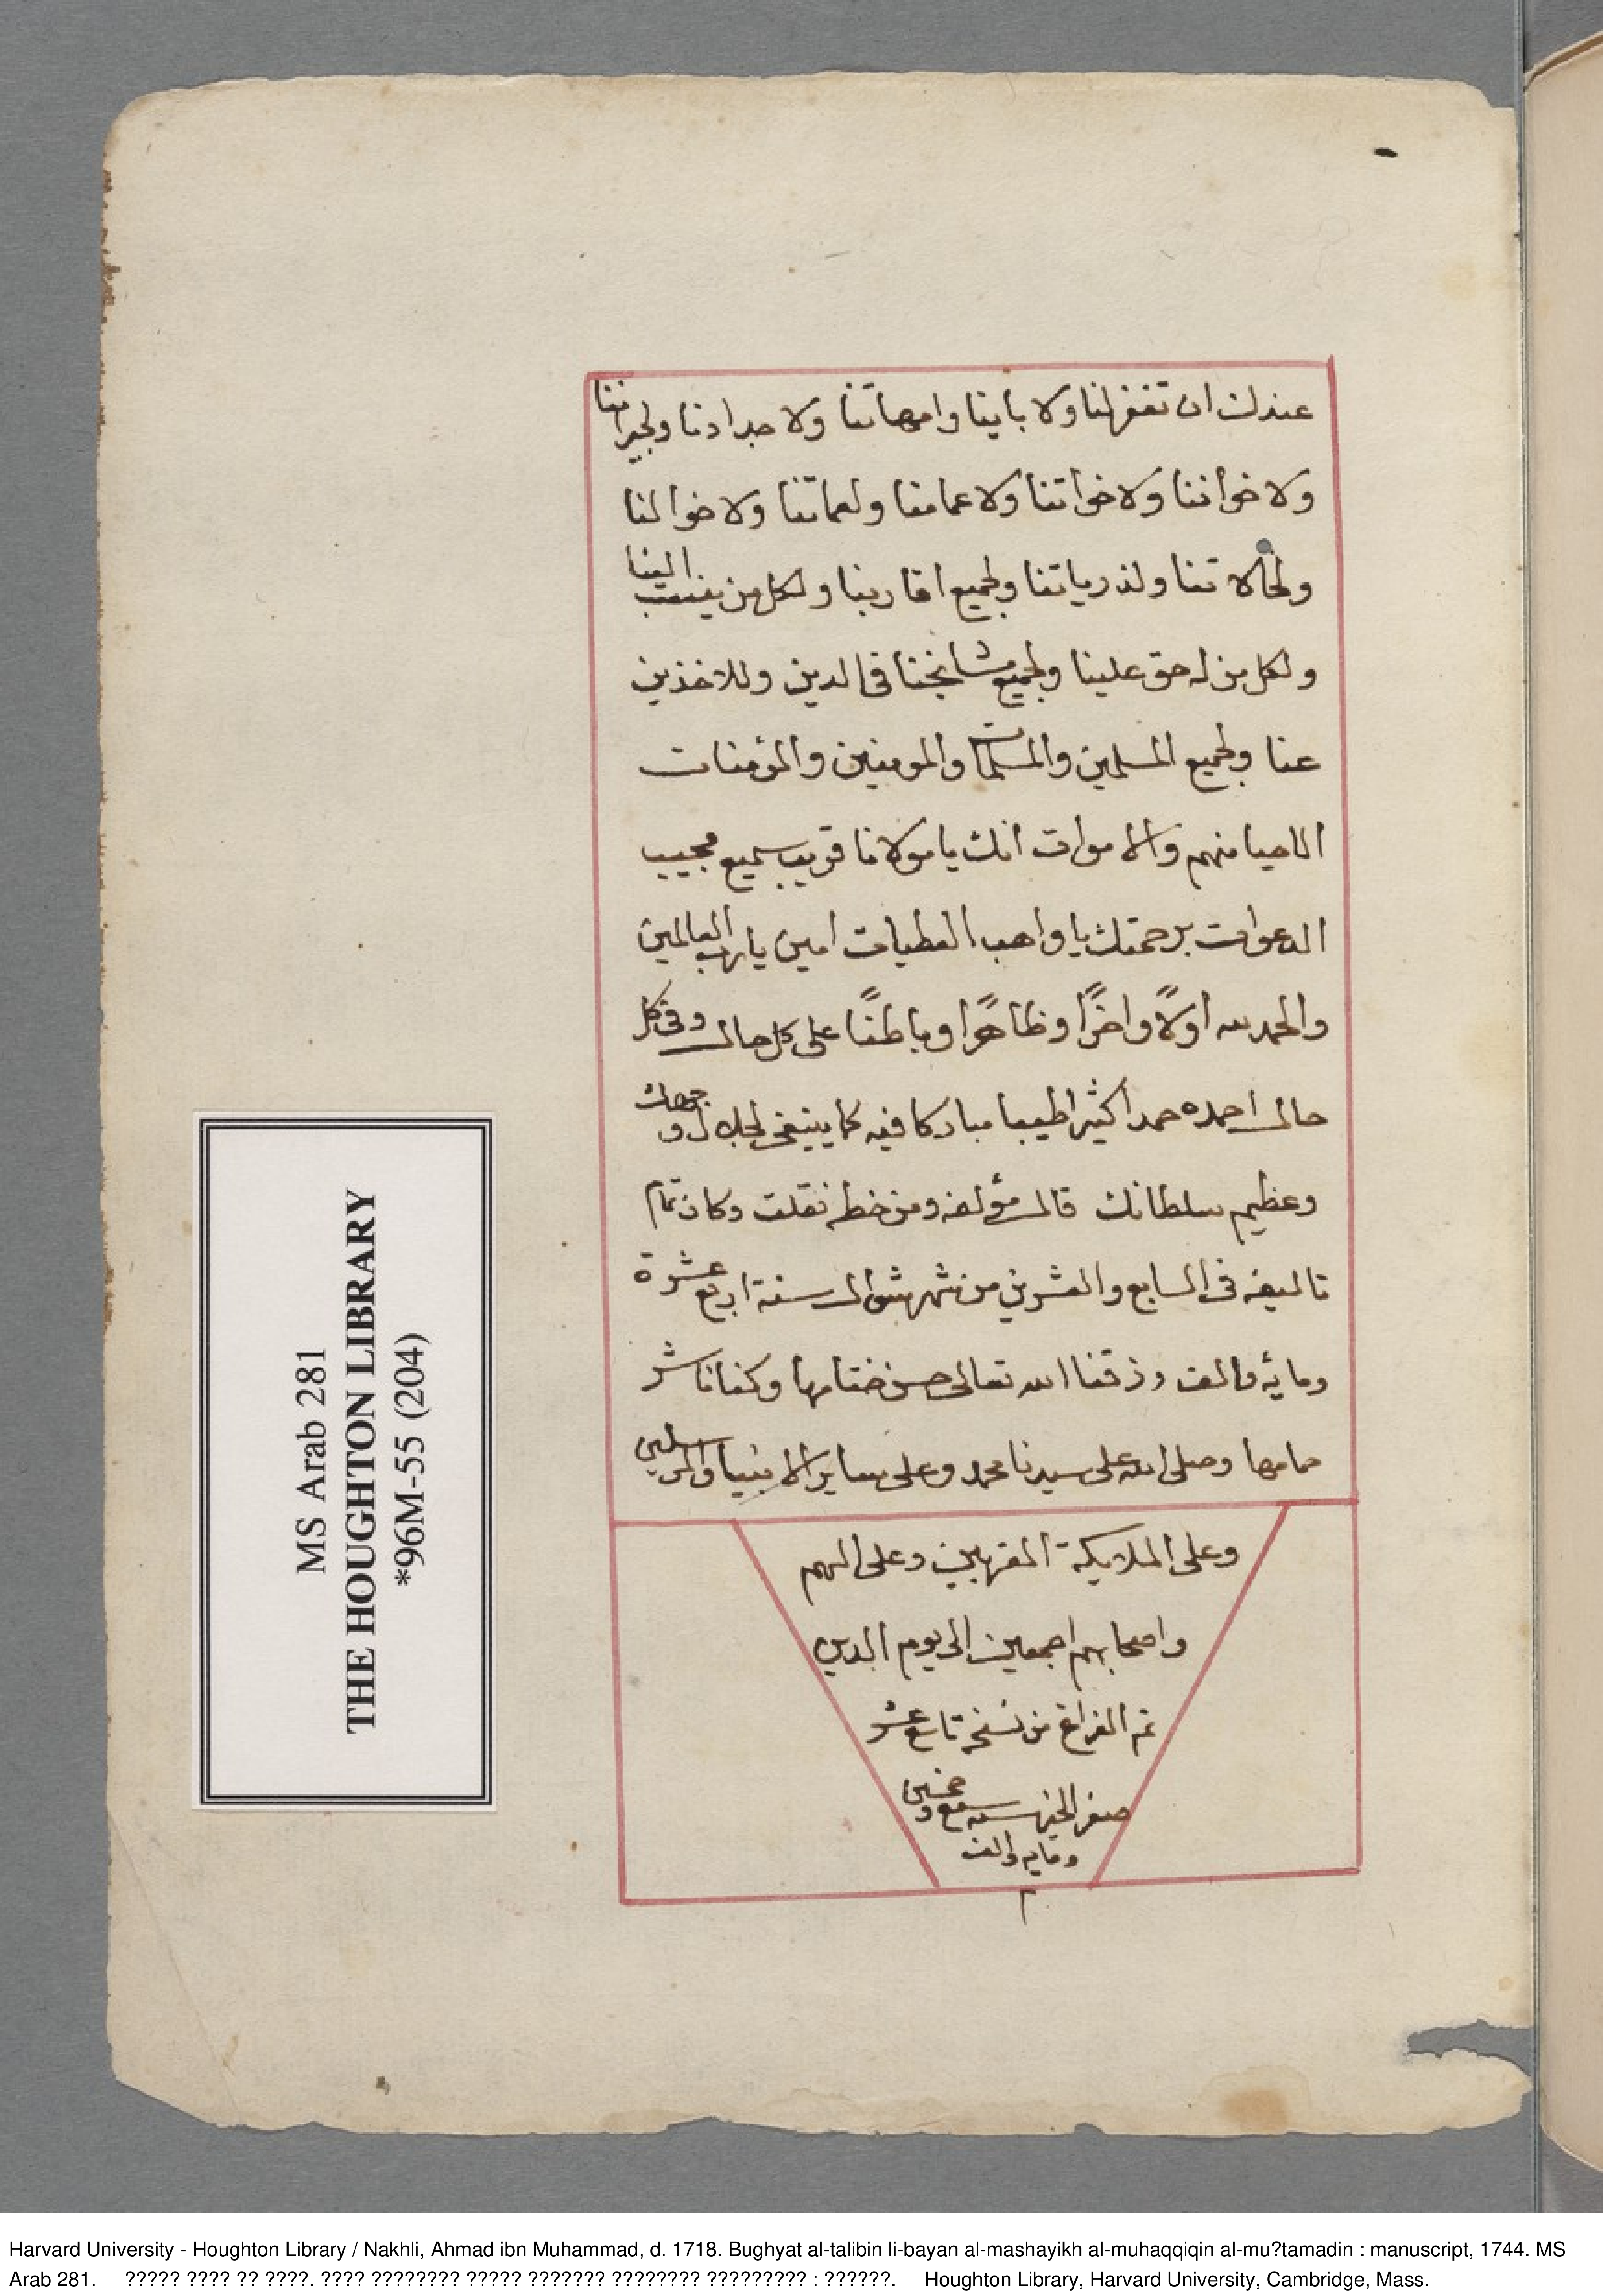 عندك ان تغفر لنا ولاباينا وامهاتنا ولاجدادنا ولجيراننا
ولاخواننا ولاخواتنا ولاعمامنا ولعماتنا ولاخوالنا
ولخالاتنا ولذرياتنا ولجميع اقاربنا ولكل من ينتسب الينا
ولكل من له حق علينا ولجميع مشايخنا في الدين وللاخذين
عنا ولجميع المسلمين والمسلمات والمومنين والمؤمنات
الاحيا منهم والاموات انك يا مولانا قريب سميع مجيب
الدعوات برحمتك يا واهب العطيات امين يا رب العالمين
والحمد لله اولًا واخرًا وظاهرًا وباطنًا على كل حال وفي كل
حال احمده حمدا كثيرا طيبا مباركا فيه كما ينبغي لجلال وجهك
وعظيم سلطانك قال مؤلفه ومن خطه نقلت وكان تمام
تاليفه في السابع والعشرين من شهر شوال سنة اربع عشرة
وماية والف رزقنا الله تعالى حسن ختامها وكفانا شر
حمامها وصلى الله على سيدنا محمد وعلى ساير الانبيا والمرسلين
وعلى الملايكة المقربين وعلى الهم
واصحابهم اجمعين الى يوم الدين
تم الفراغ من نسخه تاسع عشر
صفر الخير سنه سبع وخمسين
ومايه والف
م
MS Arab 281
THE HOUGHTON LIBRARY
*96M-55 (204)
Harvard University - Houghton Library / Nakhli, Ahmad ibn Muhammad, d. 1718. Bughyat al-talibin li-bayan al-mashayikh al-muhaqqiqin al-mu?tamadin : manuscript, 1744. MS
Arab 281. ????? ???? ?? ????. ???? ???????? ????? ??????? ???????? ????????? : ??????. Houghton Library, Harvard University, Cambridge, Mass.